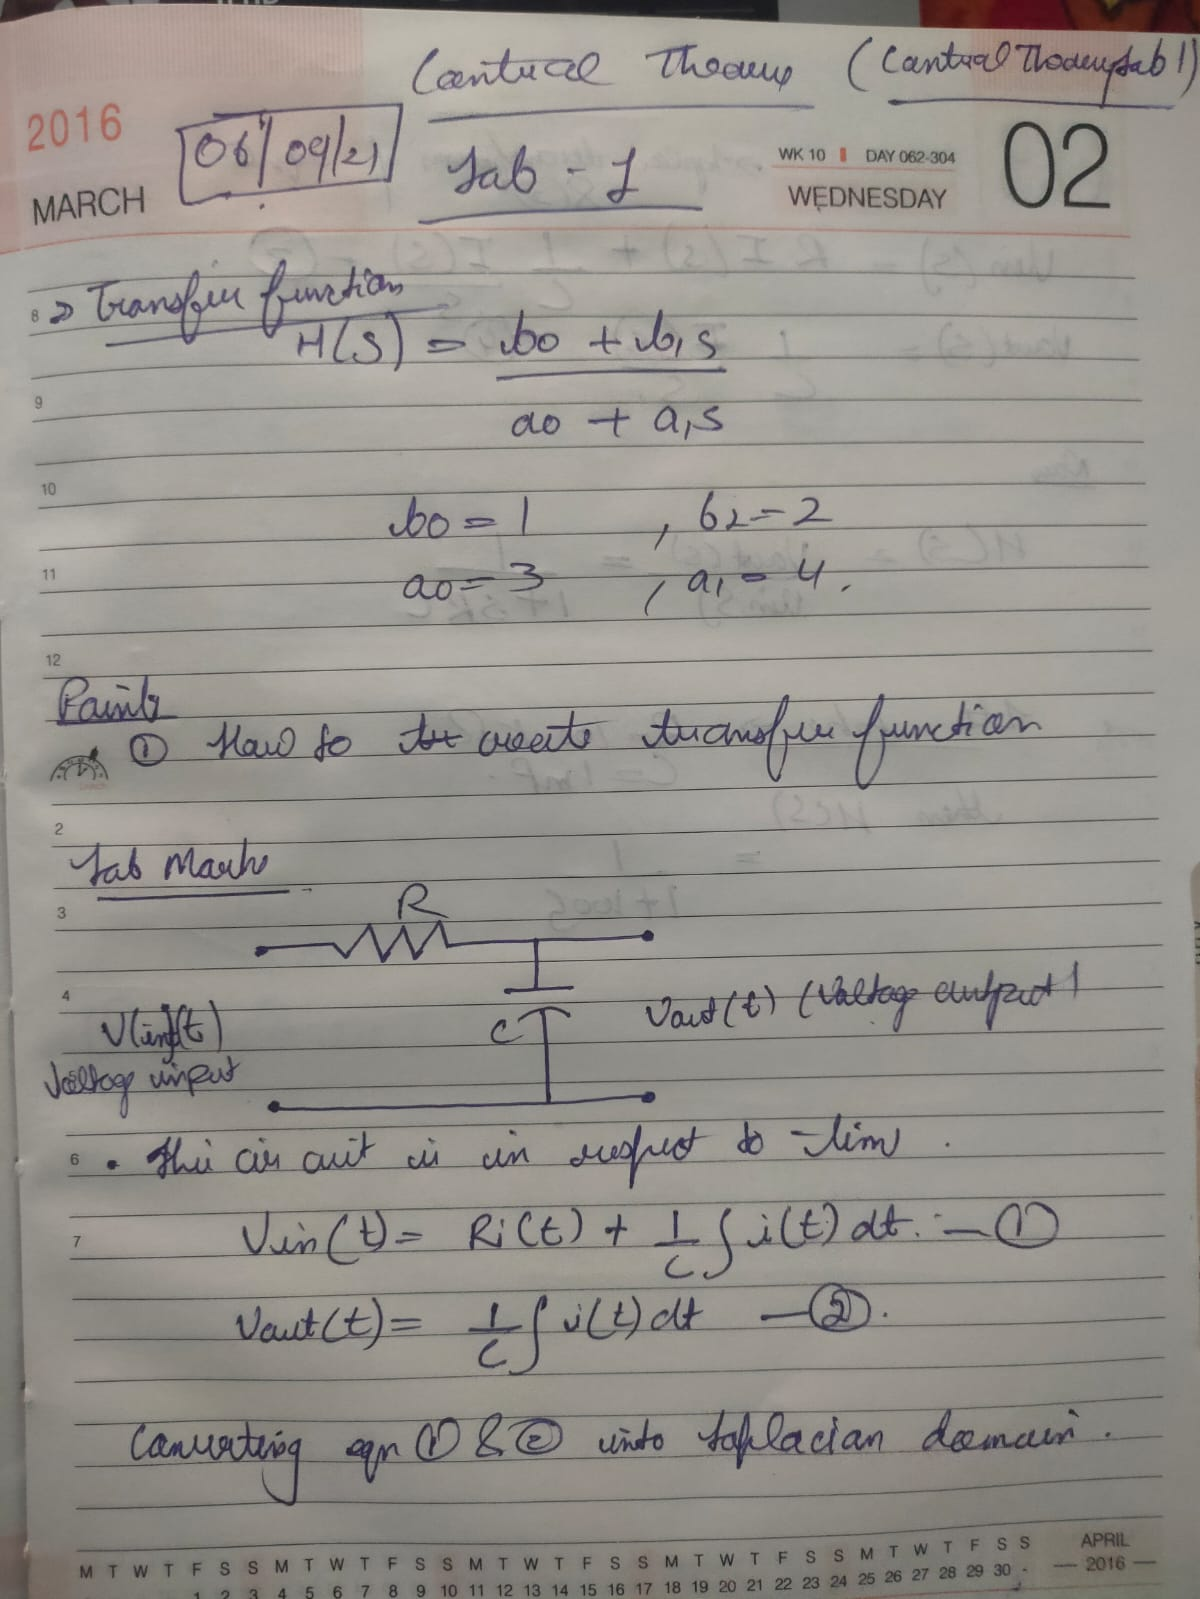 Control Theory (Control Theory Lab 1)
2016
MARCH
06/09/21
Lab - 1
WK 10 DAY 062-304
WEDNESDAY
02
Transfer function
8
H(S) = b0 + b1s
9
a0 + a1s
10
b0 = 1 , b2 = 2
11
a0 = 3 , a1 = 4.
12
Points
① How to create transfer function
2
Lab Mark
3
R
4
V(in)(t)
C
Vout(t) (Voltage output)
Voltage input
6
. This circuit is in respect to time .
7
Vin(t) = Ri(t) + 1/C ∫ i(t) dt. — ①
Vout(t) = 1/C ∫ i(t) dt — ②.
Converting eqn ① & ② into Laplacian domain .
M T W T F S S M T W T F S S M T W T F S S M T W T F S S M T W T F S S
1 2 3 4 5 6 7 8 9 10 11 12 13 14 15 16 17 18 19 20 21 22 23 24 25 26 27 28 29 30
APRIL
2016